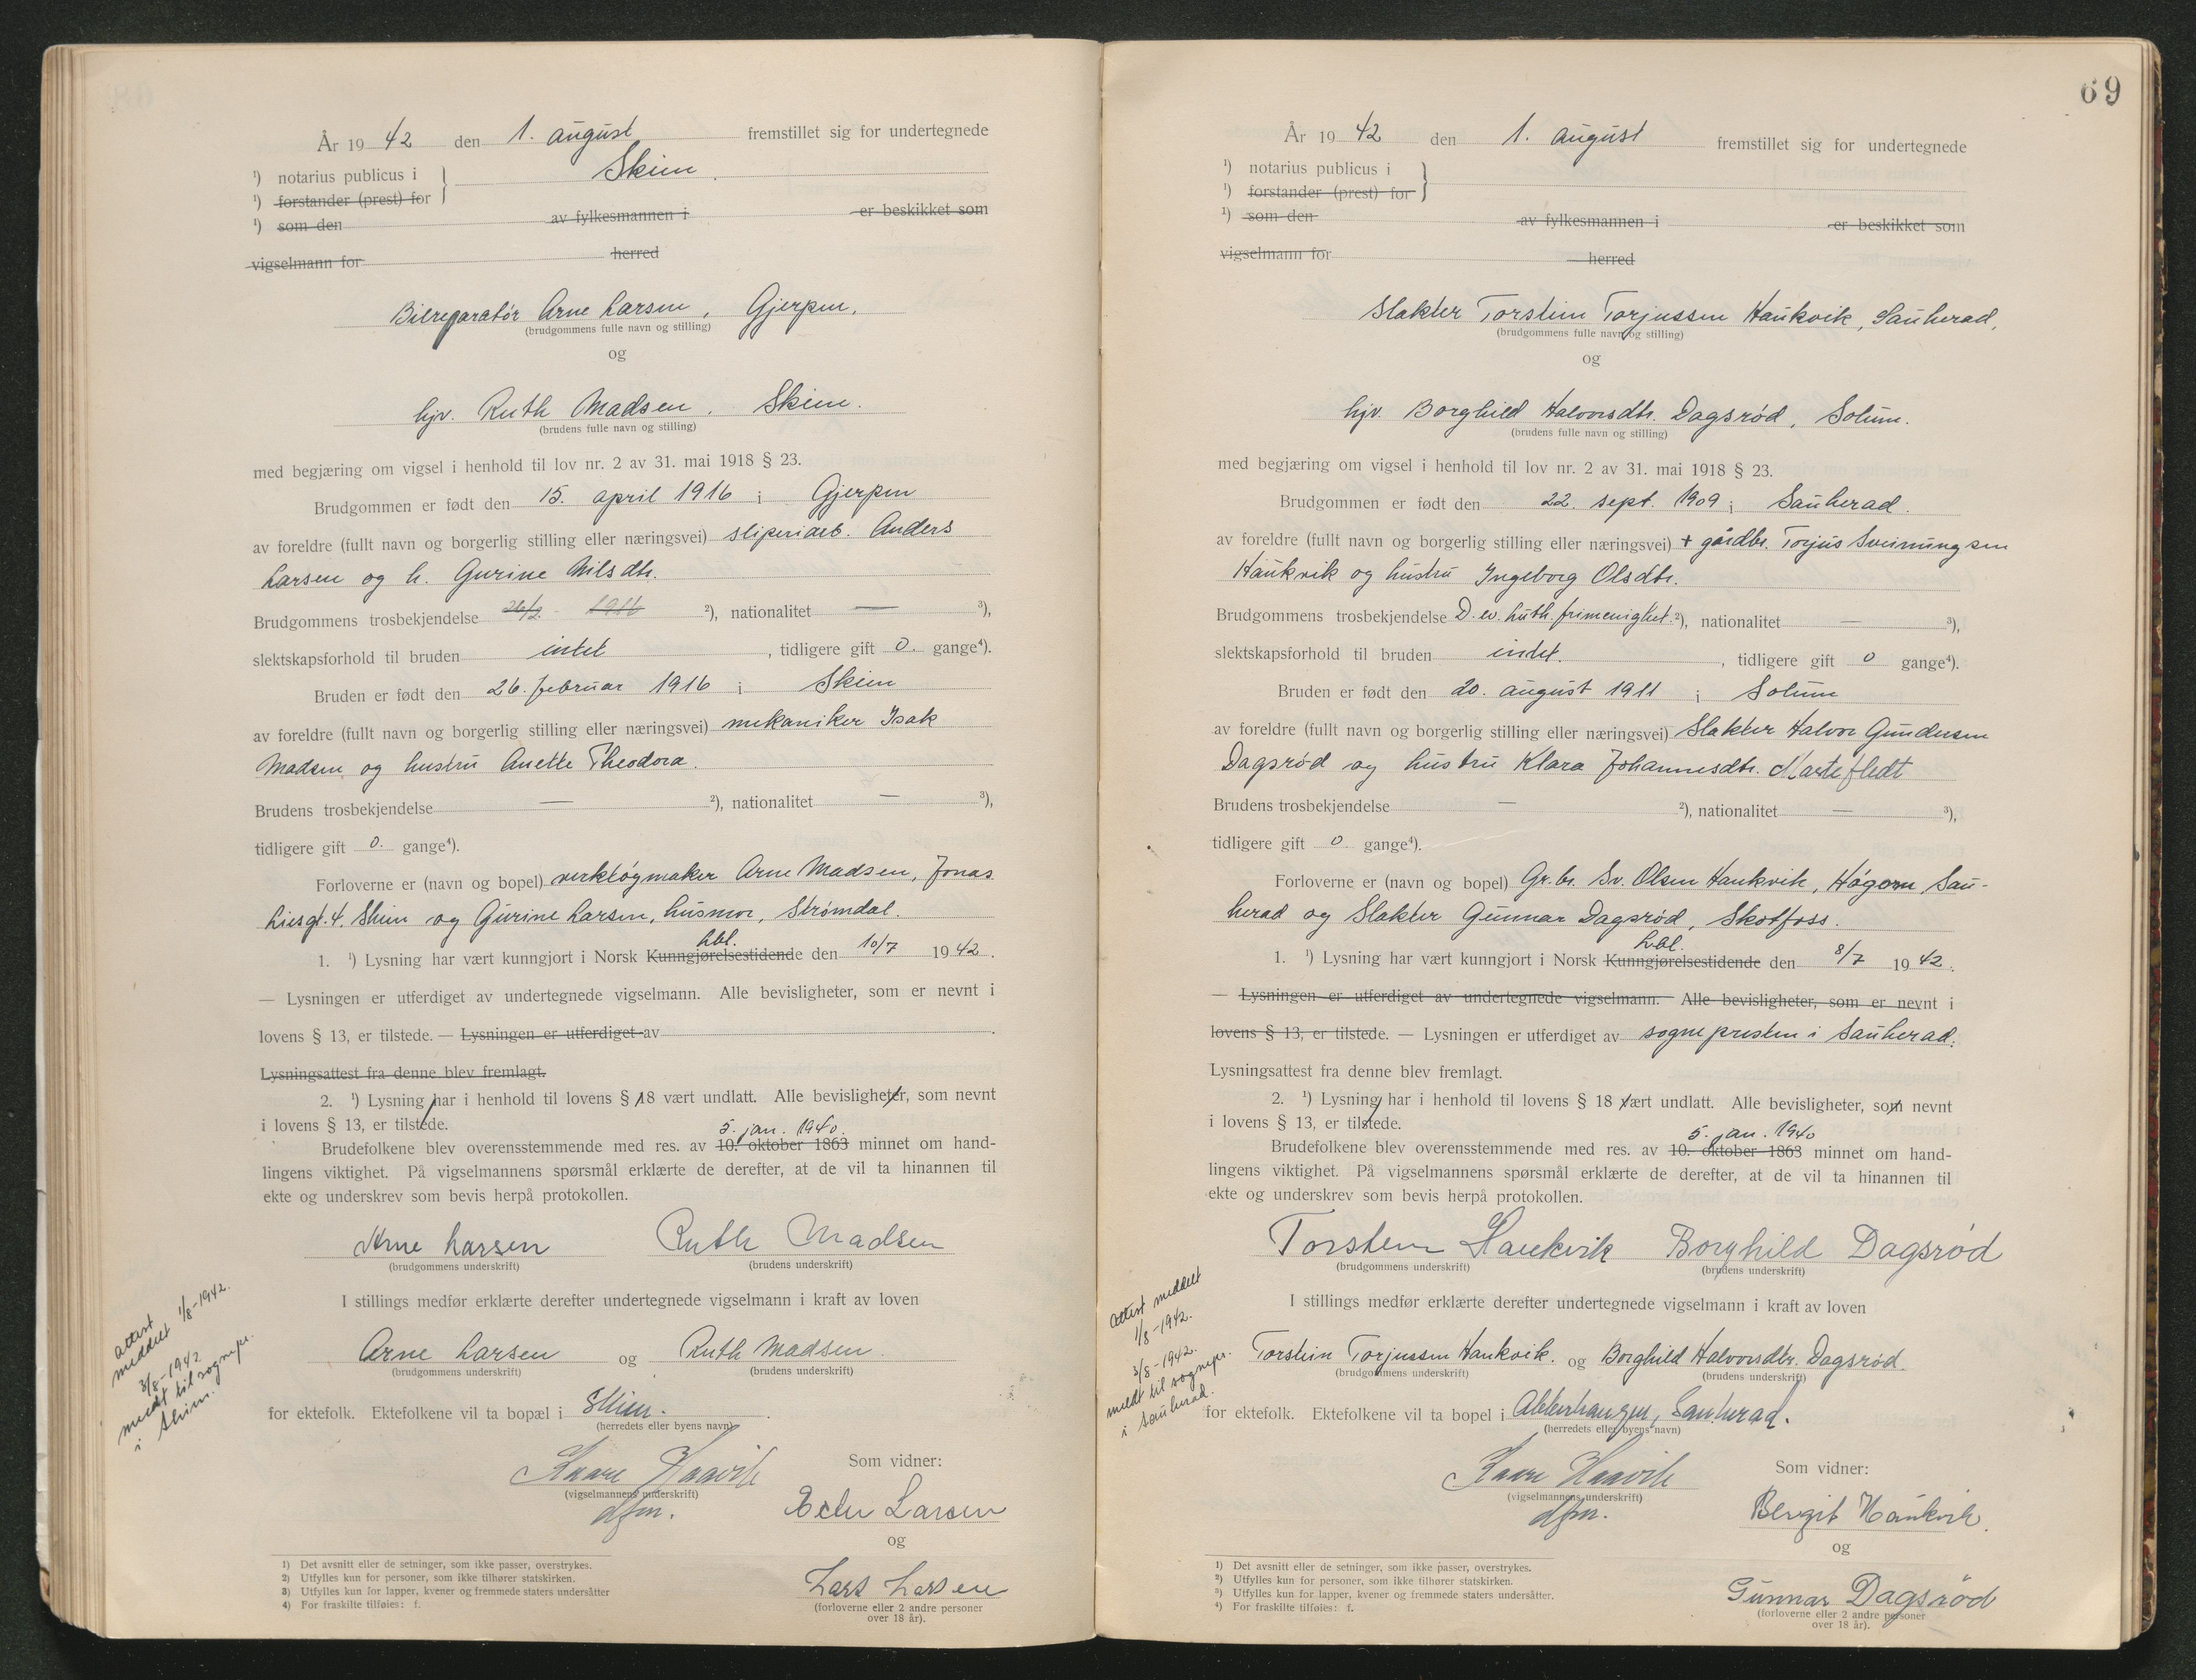 År 1942 den 1. august fremstillet sig for undertegnede
¹) notarius publicus i Skien.
¹) forstander (prest) for
¹) som den av fylkesmannen i er beskikket som
vigselmann for herred
Bilreparatør Arne Larsen, Gjerpen,
(brudgommens fulle navn og stilling)
og
hjv. Ruth Madsen, Skien.
(brudens fulle navn og stilling)
med begjæring om vigsel i henhold til lov nr. 2 av 31. mai 1918 § 23.
Brudgommen er født den 15. april 1916 i Gjerpen
av foreldre (fullt navn og borgerlig stilling eller næringsvei) sliperiarb. Anders
Larsen og h. Gurine Nilsdtr.
Brudgommens trosbekjendelse 26/2 1916 ²), nationalitet — ³),
slektskapsforhold til bruden intet, tidligere gift 0. gange⁴).
Bruden er født den 26. februar 1916 i Skien
av foreldre (fullt navn og borgerlig stilling eller næringsvei) mekaniker Isak
Madsen og hustru Anette Theodora.
Brudens trosbekjendelse — ²), nationalitet — ³),
tidligere gift 0. gange⁴).
Forloverne er (navn og bopel) verktøymaker Arne Madsen, Jonas
Liesgt. 4, Skien og Gurine Larsen, husmor, Strømdal.
Lbl.
1. ¹) Lysning har vært kunngjort i Norsk Kunngjørelsestidende den 10/7 1942.
— Lysningen er utferdiget av undertegnede vigselmann. Alle bevisligheter, som er nevnt i
lovens § 13, er tilstede. — Lysningen er utferdiget av
Lysningsattest fra denne blev fremlagt.
2. ¹) Lysning har i henhold til lovens § 18 vært undlatt. Alle bevisligheter, som nevnt
i lovens § 13, er tilstede.
5. jan. 1940.
Brudefolkene blev overensstemmende med res. av 10. oktober 1863 minnet om hand-
lingens viktighet. På vigselmannens spørsmål erklærte de derefter, at de vil ta hinannen til
ekte og underskrev som bevis herpå protokollen.
Arne Larsen Ruth Madsen
(brudgommens underskrift) (brudens underskrift)
I stillings medfør erklærte derefter undertegnede vigselmann i kraft av loven
Arne Larsen og Ruth Madsen.
(brudgommens underskrift) (brudens underskrift)
for ektefolk. Ektefolkene vil ta bopæl i Skien.
(herredets eller byens navn)
Kaare Haavik
(vigselmannens underskrift)
dfm.
Som vidner:
Larsen
og
Lars Larsen
(forloverne eller 2 andre personer
over 18 år).
attest
meddelt 1/8-1942.
3/8-1942
medt til sognepr.
i Skien.
1) Det avsnitt eller de setninger, som ikke passer, overstrykes.
2) Utfylles kun for personer, som ikke tilhører statskirken.
3) Utfylles kun for lapper, kvener og fremmede staters undersåtter
4) For fraskilte tilføies: f.
69
År 1942 den 1. august fremstillet sig for undertegnede
¹) notarius publicus i
¹) forstander (prest) for
¹) som den av fylkesmannen i er beskikket som
vigselmann for herred
Slakter Torstein Torjussen Haukvik, Sauherad,
(brudgommens fulle navn og stilling)
og
hjv. Borghild Halvorsdtr. Dagsrød, Solum.
(brudens fulle navn og stilling)
med begjæring om vigsel i henhold til lov nr. 2 av 31. mai 1918 § 23.
Brudgommen er født den 22. sept. 1909 i Sauherad.
av foreldre (fullt navn og borgerlig stilling eller næringsvei) + gårdbr. Torjus Sveinungsen
Haukvik og hustru Ingeborg Olsdtr.
Brudgommens trosbekjendelse D. ev. luth. frimenighet. ²), nationalitet — ³),
slektskapsforhold til bruden intet., tidligere gift 0 gange⁴).
Bruden er født den 20. august 1911 i Solum
av foreldre (fullt navn og borgerlig stilling eller næringsvei) Slakter Halvor Gundersen
Dagsrød og hustru Klara Johannesdtr.
Brudens trosbekjendelse — ²), nationalitet — ³),
tidligere gift 0 gange⁴).
Forloverne er (navn og bopel) Gr.br. Sv. Olsen Haukvik, Hågorn, Sau-
herad og Slakter Gunnar Dagsrød, Skotfoss.
Lbl.
1. ¹) Lysning har vært kunngjort i Norsk Kunngjørelsestidende den 8/7 1942.
— Lysningen er utferdiget av undertegnede vigselmann. Alle bevisligheter, som er nevnt i
lovens § 13, er tilstede. — Lysningen er utferdiget av sognepresten i Sauherad.
Lysningsattest fra denne blev fremlagt.
2. ¹) Lysning har i henhold til lovens § 18 vært undlatt. Alle bevisligheter, som nevnt
i lovens § 13, er tilstede.
5. jan. 1940
Brudefolkene blev overensstemmende med res. av 10. oktober 1863 minnet om hand-
lingens viktighet. På vigselmannens spørsmål erklærte de derefter, at de vil ta hinannen til
ekte og underskrev som bevis herpå protokollen.
Torstein Haukvik Borghild Dagsrød
(brudgommens underskrift) (brudens underskrift)
I stillings medfør erklærte derefter undertegnede vigselmann i kraft av loven
Torstein Torjussen Haukvik. og Borghild Halvorsdtr. Dagsrød.
(brudgommens underskrift) (brudens underskrift)
for ektefolk. Ektefolkene vil ta bopel i Akkerhaugen, Sauherad.
(herredets eller byens navn)
Kaare Haavik
(vigselmannens underskrift)
dfm.
Som vidner:
Bergit Haukvik.
og
Gunnar Dagsrød
(forloverne eller 2 andre personer
over 18 år).
attest meddelt
1/8-1942.
3/8-1942.
medt til sognepr.
i Sauherad.
1) Det avsnitt eller de setninger, som ikke passer, overstrykes.
2) Utfylles kun for personer, som ikke tilhører statskirken.
3) Utfylles kun for lapper, kvener og fremmede staters undersåtter.
4) For fraskilte tilføies: f.